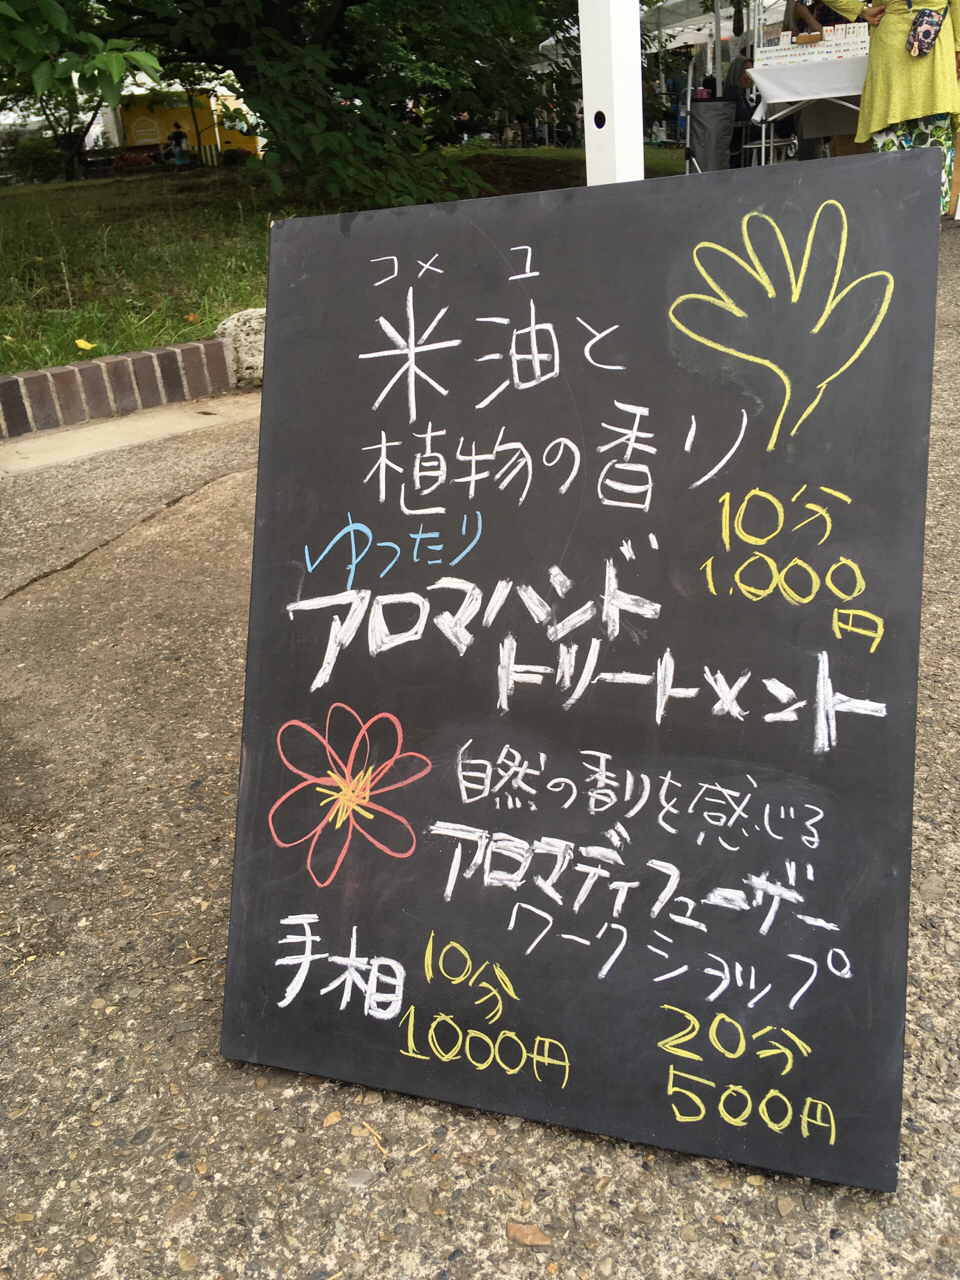 コメ ユ
米油と
植物の香り
10分
1.000
円
ゆったり
アロマハンド
トリートメント
自然の香りを感じる
アロマディフューザー
ワークショップ
手相
10分
1000円
20分
500円